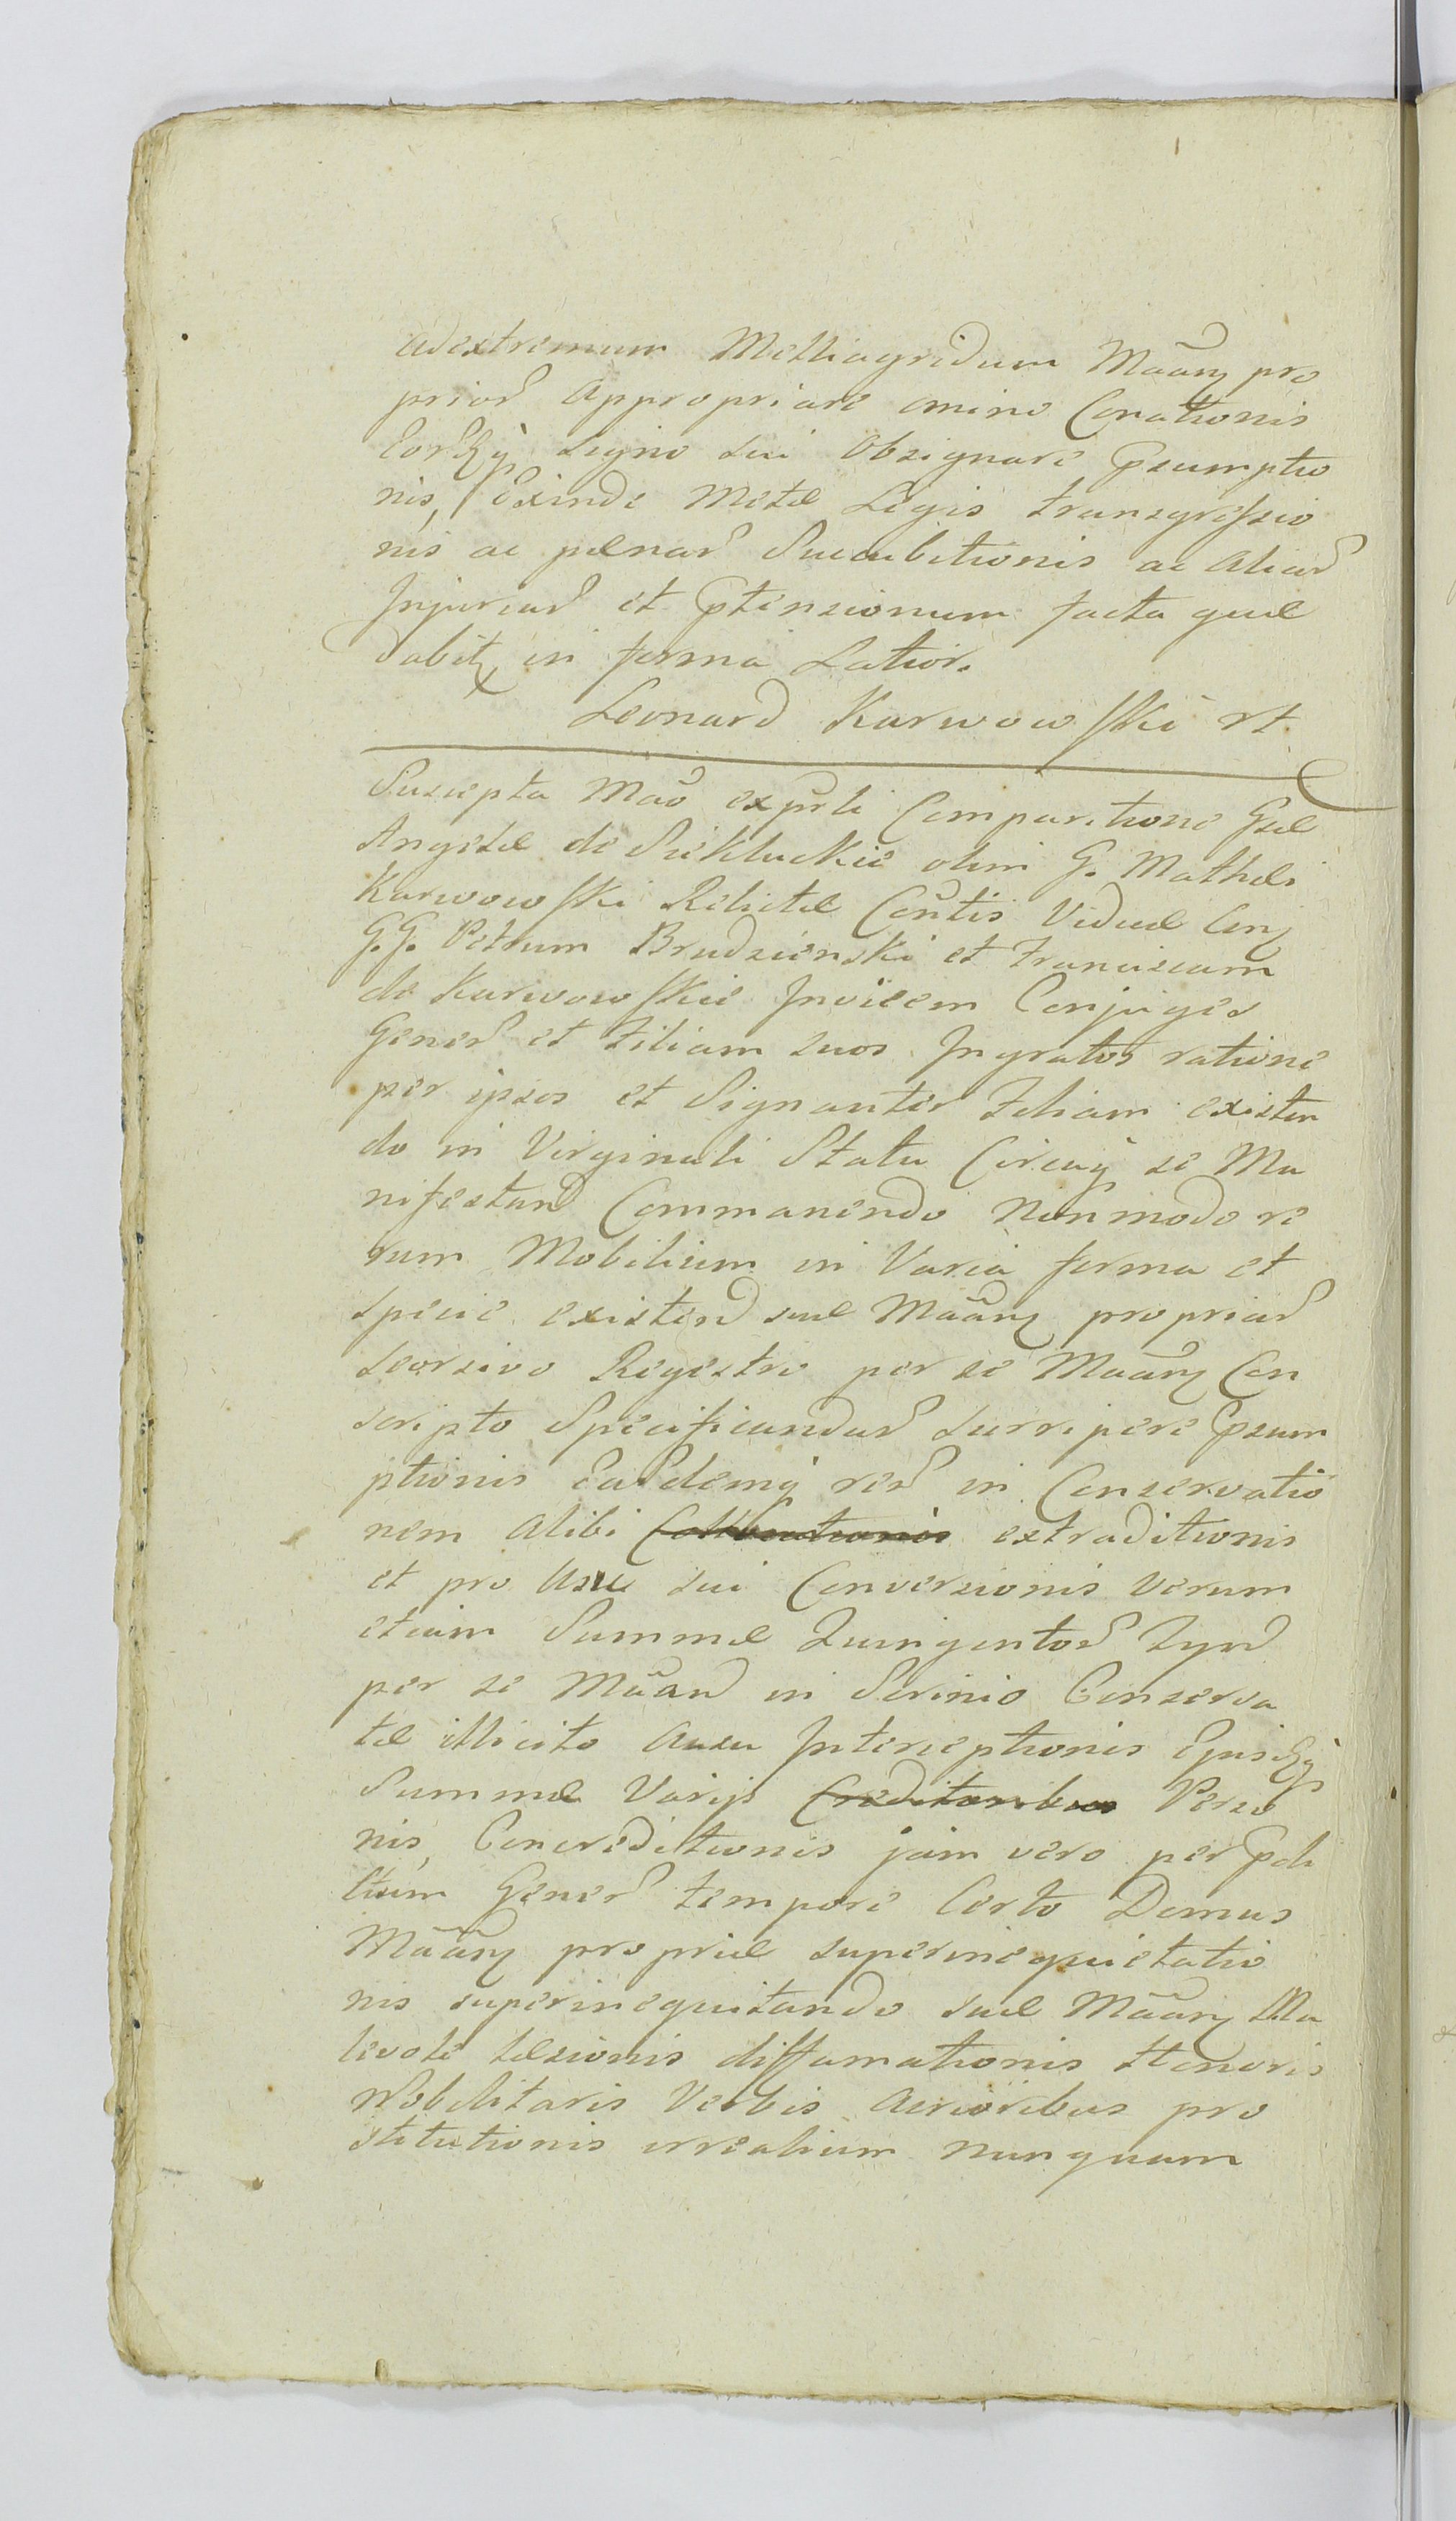 adextremum Melliagridum Mããrꝫ pro
prior̃ appropriare omine Conationis
Eorq̃ꝫ signo sui obsignare p̃sumptio
nis, Exinde Metæ Legis transgressio
nis ac pænar̃ Succubitionis ac aliar̃
Injuriar̃ et p̃tensionum facta quæ
dabitꝫ in forma Latior.
Leonard Karwowski rt.
Suscepta Mão exp̃rti Comparitione Gsæ
Angelæ de Siekluckie olim G. Mathæi
Karwowski Relictæ Con̄tis Viduæ Conꝫ
G. G. Petrum Brudzienski et Franciscam
de Karwowskie Invicem Conjuges
Gener̃ et Filiam suos Ingratos ratione
per ipsos et Signanter Filiam existen
do in Virginali Statu Circaqꝫ se Ma
nifestan̄ Commanendo non modo re
rum Mobilium in Varia forma et
specie existen̄ suæ Mããrꝫ propriar̃
seorsivo Regestro per se Mããrꝫ Con
scripto Specificandar̃ surripere p̃sum
ptionis Ear̃demqꝫ rer̃ in Conservatio
nem alibi Collocationis extraditionis
et pro usu sui Conversionis verum
etiam Summæ Quingentor̃ Zyn̄
per se Mãan̄ in Scrinio Conserva
tæ illicito ausu Interceptionis Ejusq̃ꝫ
Summæ Varijs Creditoribus Perso
nis, Concreditionis jam vero per p̃di
ctum Gener̃ tempore Certo Domus
Mããrꝫ propriæ superinequietatio
nis superinequitando suæ Mããrꝫ Ma
levole læsionis diffamationis Honoris
Nobilitaris Verbis acrioribus pro
stitutionis irrealium nunquam